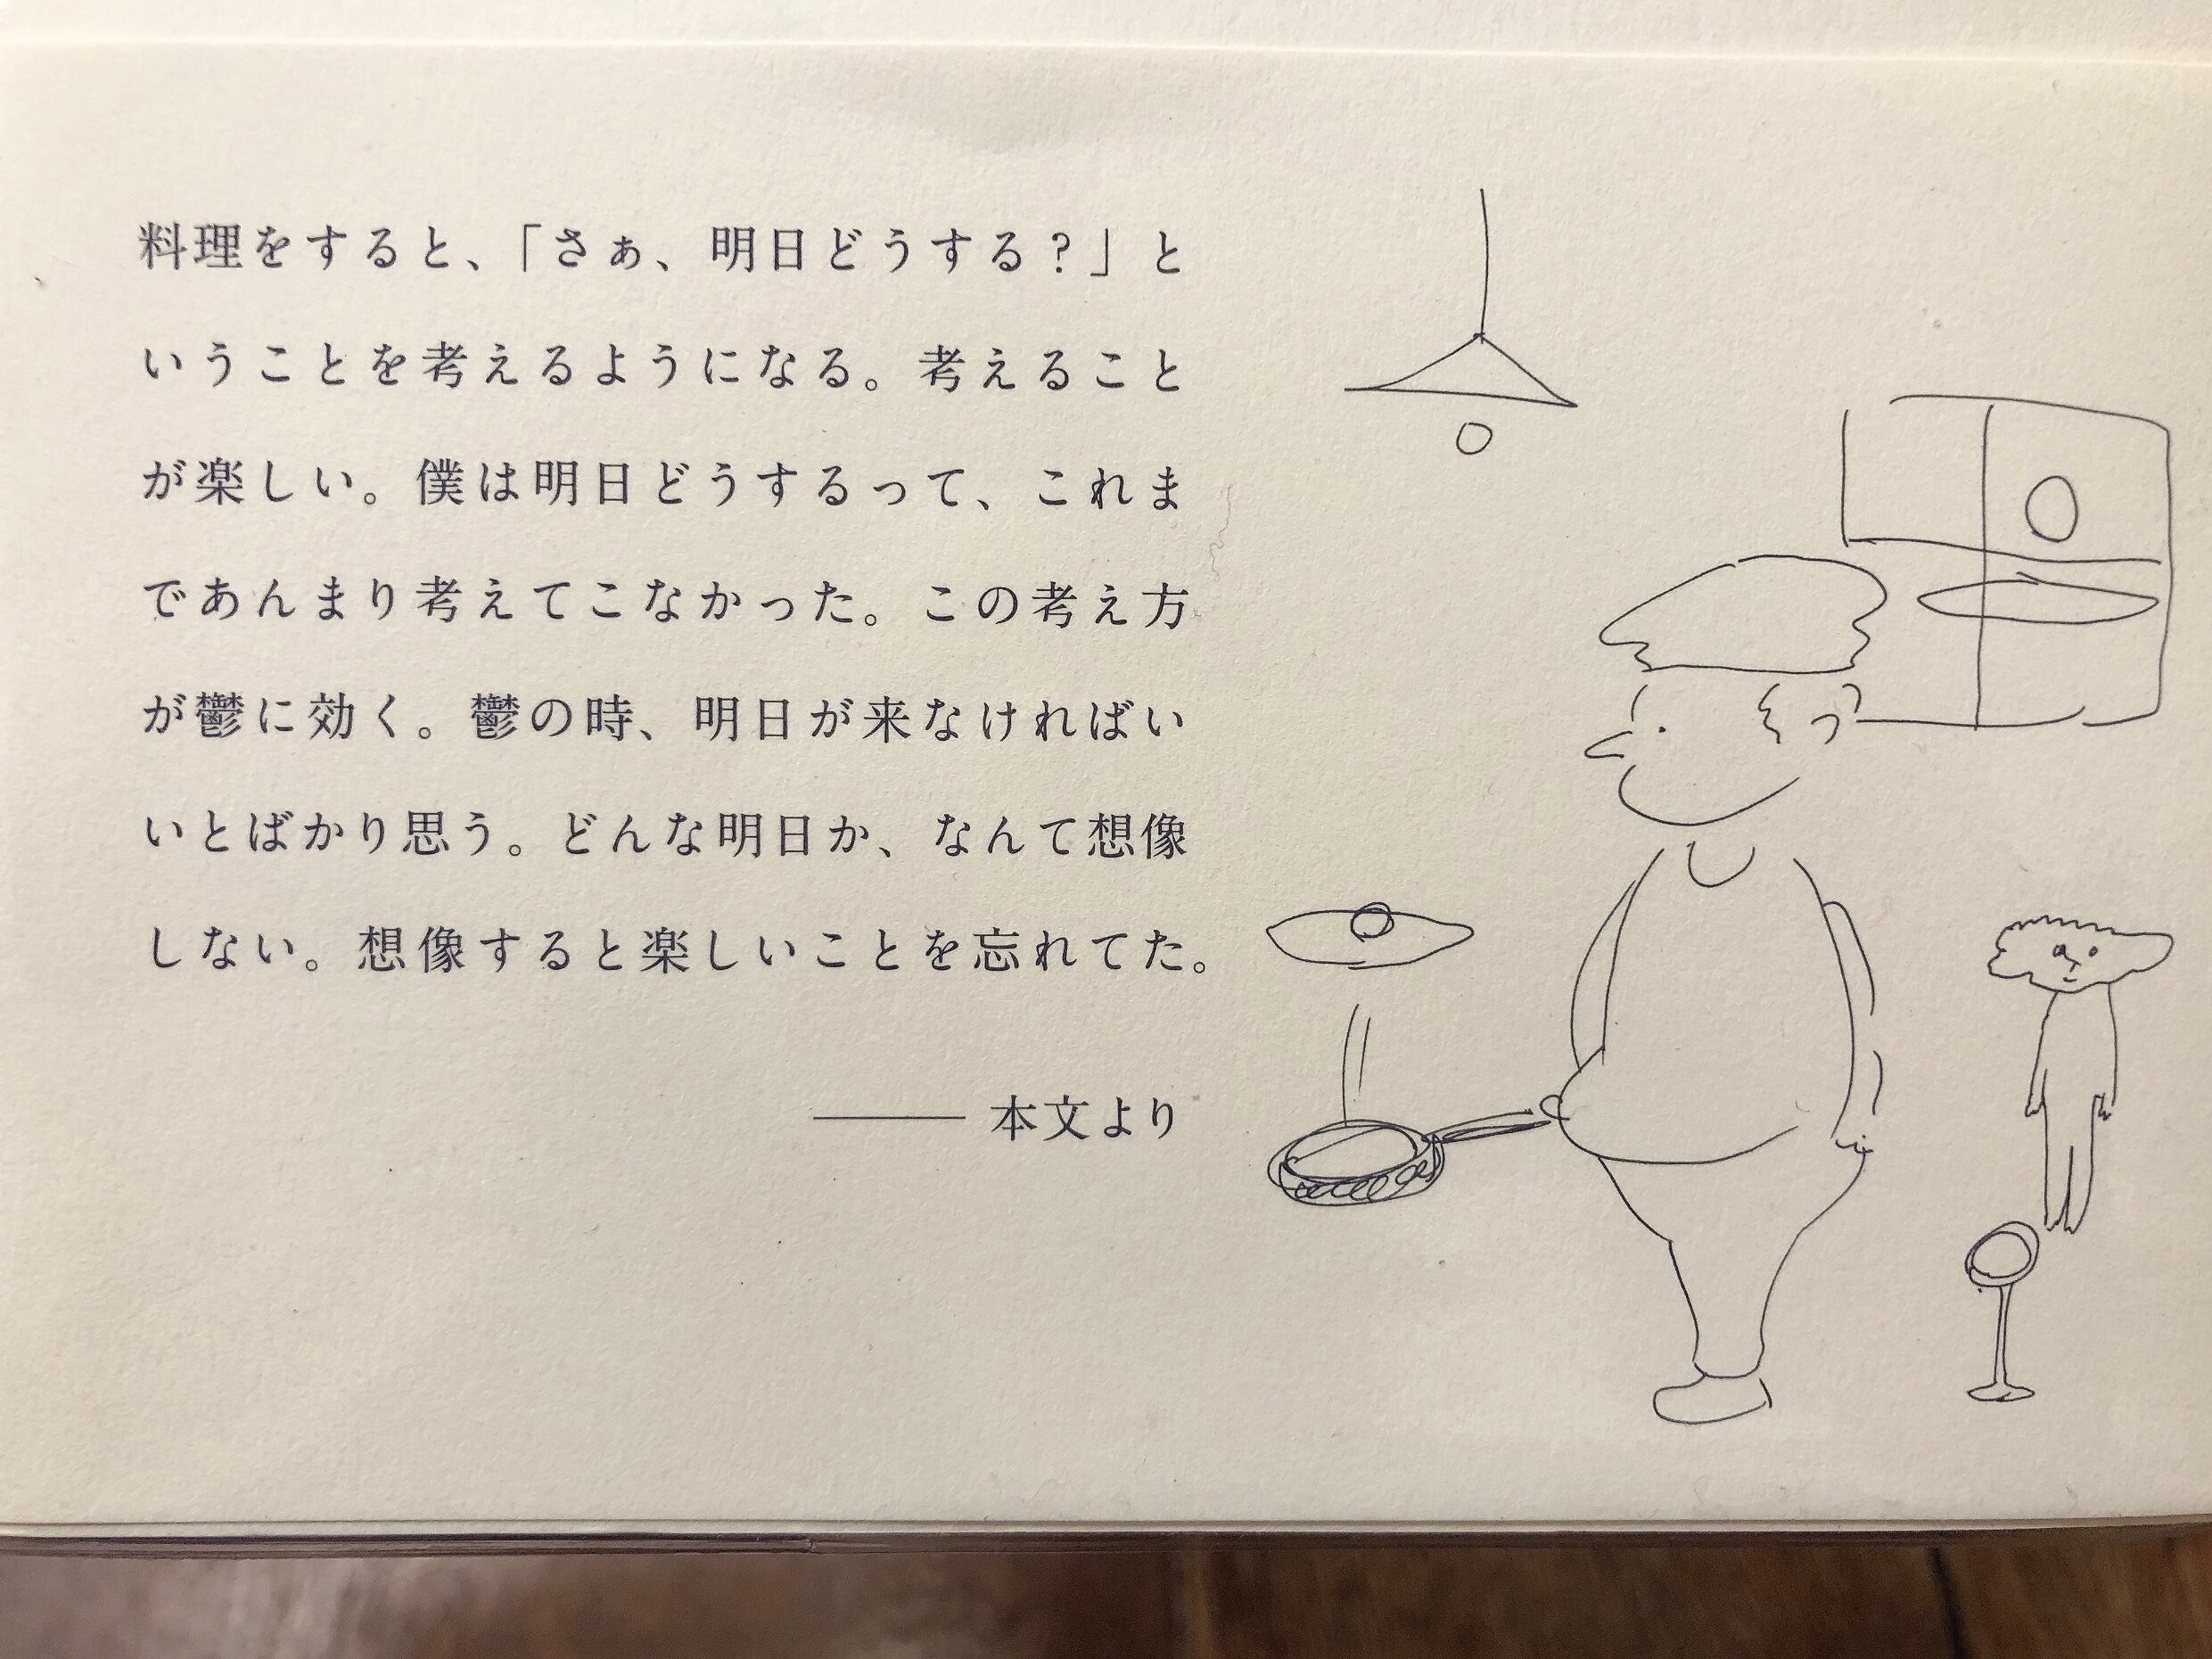 料理をすると、「さぁ、明日どうする？」と
いうことを考えるようになる。考えること
が楽しい。僕は明日どうするって、これま
であんまり考えてこなかった。この考え方
が鬱に効く。鬱の時、明日が来なければい
いとばかり思う。どんな明日か、なんて想像
しない。想像すると楽しいことを忘れてた。
―― 本文より